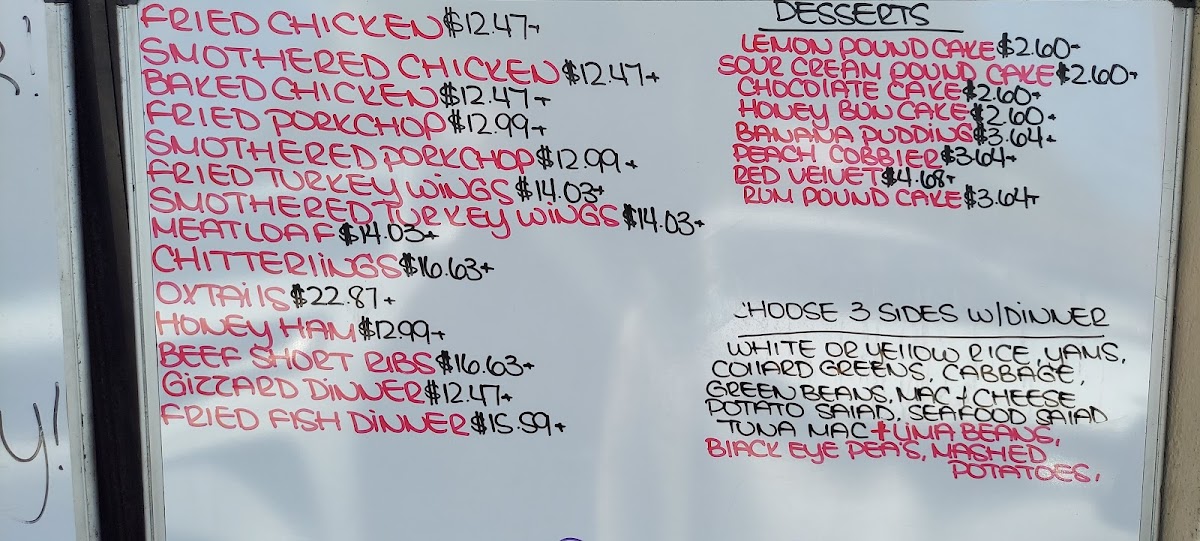 FRIED CHICKEN $12.47+
SMOTHERED CHICKEN $12.47+
BAKED CHICKEN $12.47+
FRIED PORKCHOP $12.99+
SMOTHERED PORKCHOP $12.99+
FRIED TURKEY WINGS $14.03+
SMOTHERED TURKEY WINGS $14.03+
MEATLOAF $14.03+
CHITTERlINGS $16.63+
OXTAilS $22.87+
HONEY HAM $12.99+
BEEF SHORT RIBS $16.63+
GIZZARD DINNER $12.47+
FRIED FISH DINNER $15.59+
DESSERTS
LEMON POUND CAKE $2.60+
SOUR CREAM POUND CAKE $2.60+
CHOCOlATE CAKE $2.60+
HONEY BUN CAKE $2.60+
BANANA PUDDING $3.64+
PEACH COBBlER $3.64+
RED VElVET $4.68+
RUM POUND CAKE $3.64+
CHOOSE 3 SIDES W/DINNER
WHITE OR YEllOW RICE, YAMS,
COllARD GREENS, CABBAGE,
GREEN BEANS, MAC + CHEESE
POTATO SAlAD, SEAFOOD SAlAD
TUNA MAC + LIMA BEANS,
BlACK EYE PEA'S, MASHED
POTATOES,
Y!